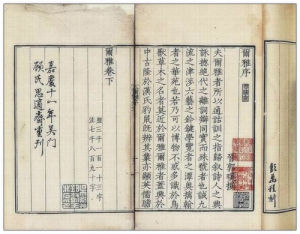 彭萬程刻
爾雅序
郭璞撰
夫爾雅者所以通詁訓之指歸敘詩人之興
詠揔絕代之離詞辯同實而殊號者也誠九
流之津涉六藝之鈐鍵學覽者之潭奧摛翰
者之華苑也若乃可以博物不惑多識於鳥
獸草木之名者莫近於爾雅爾雅者蓋興於
中古隆於漢氏豹鼠既辨其業亦顯英儒贍
爾雅卷下
經三千一百一十三字
注七千八百九十字
嘉慶十一年吳門
顧氏思適齋重刊